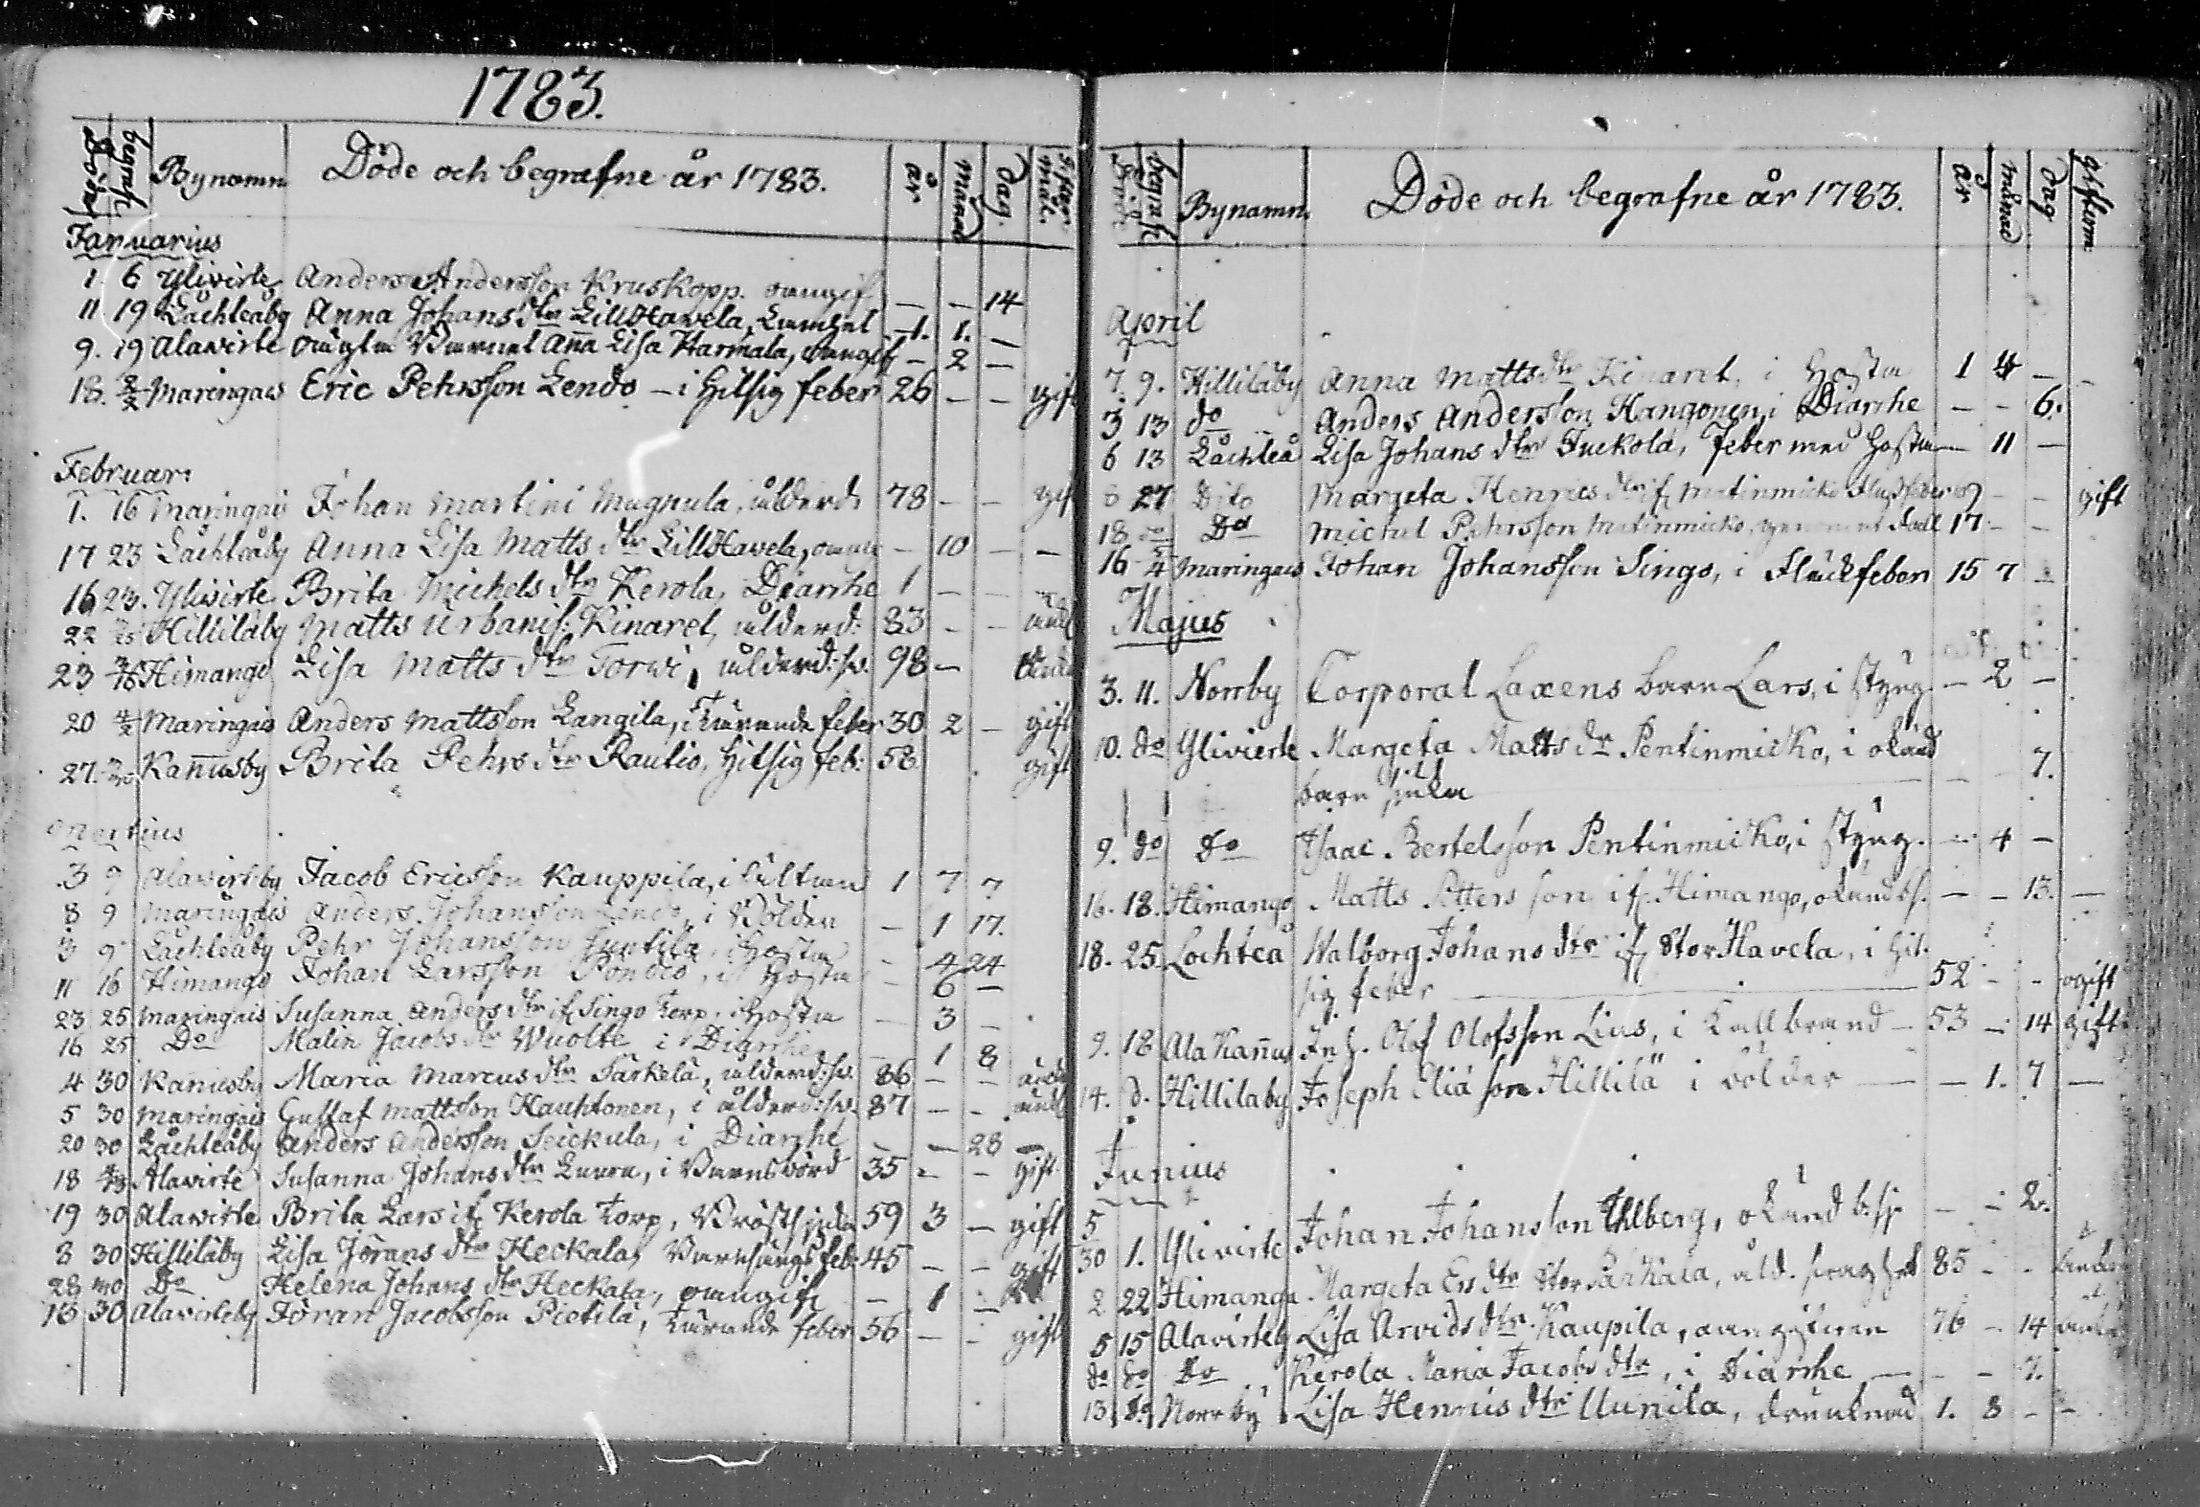 1783.
Död begrafn Bynamn Döde och begrafne år 1783. år Månad dag
Januarius
1 6 Ylivirte Anders Andersson Kruskopp. oangif — — 14
11 19 Låchteåby Anna Johans dtr LillHavela, 1. 1. —
9. 19 Alavirte Barnet Aña Lisa Harmala, oangif — 2 —
18. 2/2 Maringais Eric Pehrsson Lendo – i Hitsig feber 26 — — gift
Februar:
1. 16 Maringais Johan Martini Magnula, ålderd: 78 — — gift
17 23 Låchteåby Anna Lisa Matts dtr LillHavela, — 10 — —
16 23. Ylivirte Brita Michels dtr Kerola, Diarrhe 1 — —
22 Hillilåby Matts Urbanis: Kinaret, ålderd: 83 - - änkl
23 3/16 Himango Lisa Matts dtr Torvi, ålderd:sv. 98 —
20 Maringais Anders Mattsson Langila, i feber 30 2 — gift
27. Kañusby Brita Pehrs dtr Rautio, Hitsig feb: 58 gift
Martius
3 9 Alavirteby Jacob Ericsson Kauppila, i 1 7 7
8 9 Maringais Anders Johansson Lendo, i Bölder — 1 17.
3 9 Låchteåby Pehr Johansson Juntila, i Hosta - 4 24
11 16 Himango Johan Larsson Pöndiö, i Hosta - 6 —
23 25 Maringais Susanna Anders dtr if Singo Torp. i Hosta — 3 —
16 25 Do Malin Jacobs dtr Wuolte i Diarrhe — 1 8
4 30 Kañusby Maria Marcus dtr Särkelä, ålderd:sv. 86 — —
5 30 Maringais Gustaf Mattsson Kauhtonen, i ålderd:sv. 87 — - änkl
20 30 Låchteåby Anders Andersson Seickula, i Diarrhe — — 28 —
18 Alavirte Susanna Johans dtr Luura, i Barnsbörd 35 - - gift
19 30 Alavirte Brita Lars if Kerola Torp, Bröstsjuka 59 3 — gift
3 30 Hillilåby Lisa Jörans dtr Heckala, Barnsängsfeb: 45 — — gift
28 30 Do Helena Johans dtr Heckala, oangift — 1 —
13 30 Alavirteby Jöran Jacobsson Pietilä, feber 56 — — gift
Död begrafn Bynamn Döde och begrafne år 1783. år månad dag
April
7. 9. Hillilåby Anna Matts dtr Kinaret, i Hosta 1 4 — -
3 13 do Anders Andersson Hangonen, i Diarrhe — - 6.
6 13 Låchteå Lisa Johans dtr Juckola, feber med Hosta — 11 —
27 Dito Margeta Henrics dtr if Matinmicko - - gift
18 do Do Michel Pehrsson Matinmicko, 17 — -
16 5/4 Maringais Johan Johansson Singo, i Fläckfeber 15 7
Majus
3. 11. Norrby Corporal Laxens barn Lars, i styng — 2 —
10. do Ylivierte Margeta Matts dr Pentinmicko, i okänd
barn sjuka — — 7.
9. do Do Isaac Bertelsson Pentinmicko, i styng. — 4 —
16. 18. Himango Matts Petters son if. Himango, okänd bs. — — 13. —
18. 25. Lochteå Walborg Johans dtr if StorHavela, i hit-
sig feber 52 - - ogift
9. 18 Ala Kañus Inh. Olof Olofsson Lius, i Kallbrand — 53 — 14 gift
14. d. Hillilaby Joseph Eliä son Hillilä i bölder — — 1. 7 —
Junius
5/30 1. Ylivirte Johan Johansson Ihlberg, okänd b.sj. — — 2.
2 22 Himango Margeta Ers dtr Stor Särkälä, åld. svaghet 85 - -
5 15 Alavirteby Lisa Arvids dtr Kaupila, 76 — 14
do do Do Kerola Maria Jacobs dtr, i Diarrhe — — - 7.
13 d. Norrby Lisa Henrics dtr Uunila, drunknad 1. 8 - -